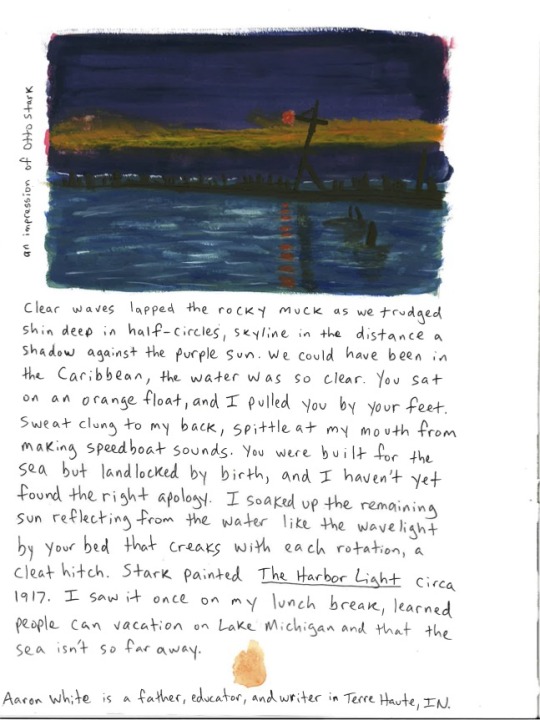 an impression of Otto Stark
Clear waves lapped the rocky muck as we trudged
shin deep in half-circles, skyline in the distance a
shadow against the purple sun. We could have been in
the Caribbean, the water was so clear. You sat
on an orange float, and I pulled you by your feet.
Sweat clung to my back, spittle at my mouth from
making speedboat sounds. You were built for the
sea but landlocked by birth, and I haven't yet
found the right apology. I soaked up the remaining
sun reflecting from the water like the wavelight
by your bed that creaks with each rotation, a
cleat hitch. Stark painted The Harbor Light circa
1917. I saw it once on my lunch break, learned
people can vacation on Lake Michigan and that the
sea isn't so far away.
Aaron White is a father, educator, and writer in Terre Haute, IN.